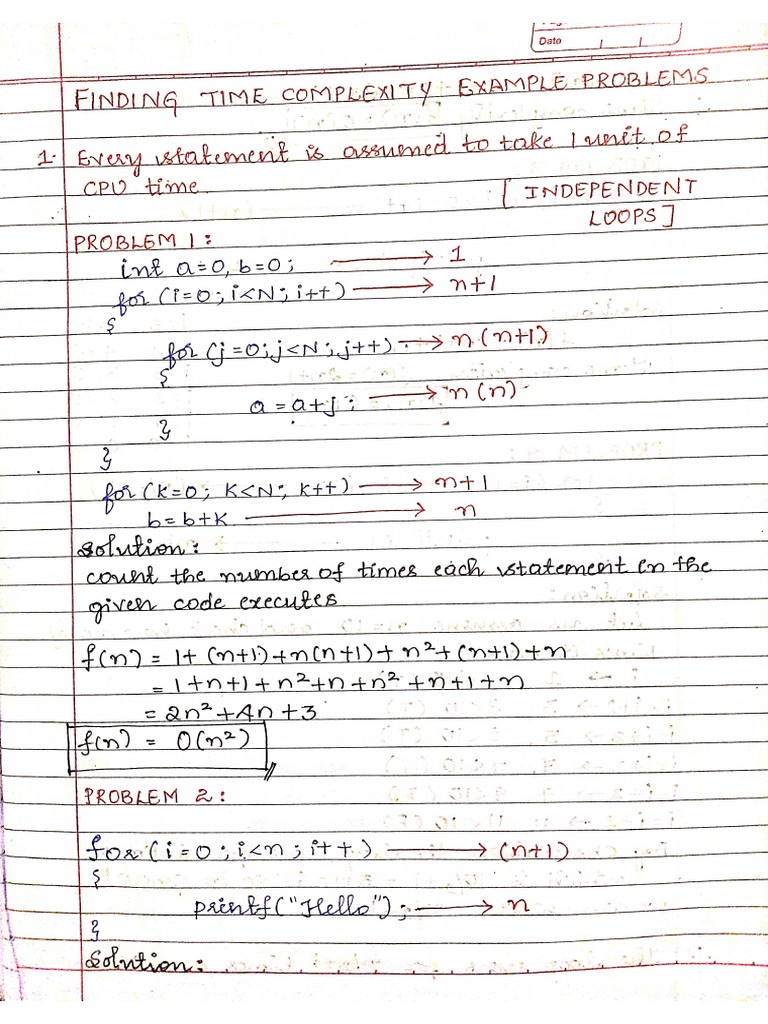 Date
FINDING TIME COMPLEXITY - EXAMPLE PROBLEMS
1. Every statement is assumed to take 1 unit of
CPU time
[ INDEPENDENT
LOOPS ]
PROBLEM 1 :
int a=0, b=0; → 1
for (i=0; i<N; i++) → n+1
{
for (j=0; j<N; j++) → n(n+1)
{
a = a+j; → n(n)
}
}
for (K=0; K<N; K++) → n+1
b=b+K → n
Solution:
count the number of times each statement in the
given code executes
f(n) = 1+ (n+1)+n(n+1)+ n²+(n+1)+n
= 1+n+1+n²+n+n²+n+1+n
= 2n²+4n+3
f(n) = O(n²)
PROBLEM 2 :
for (i=0; i<n; i++) → (n+1)
{
printf("Hello"); → n
}
Solution: